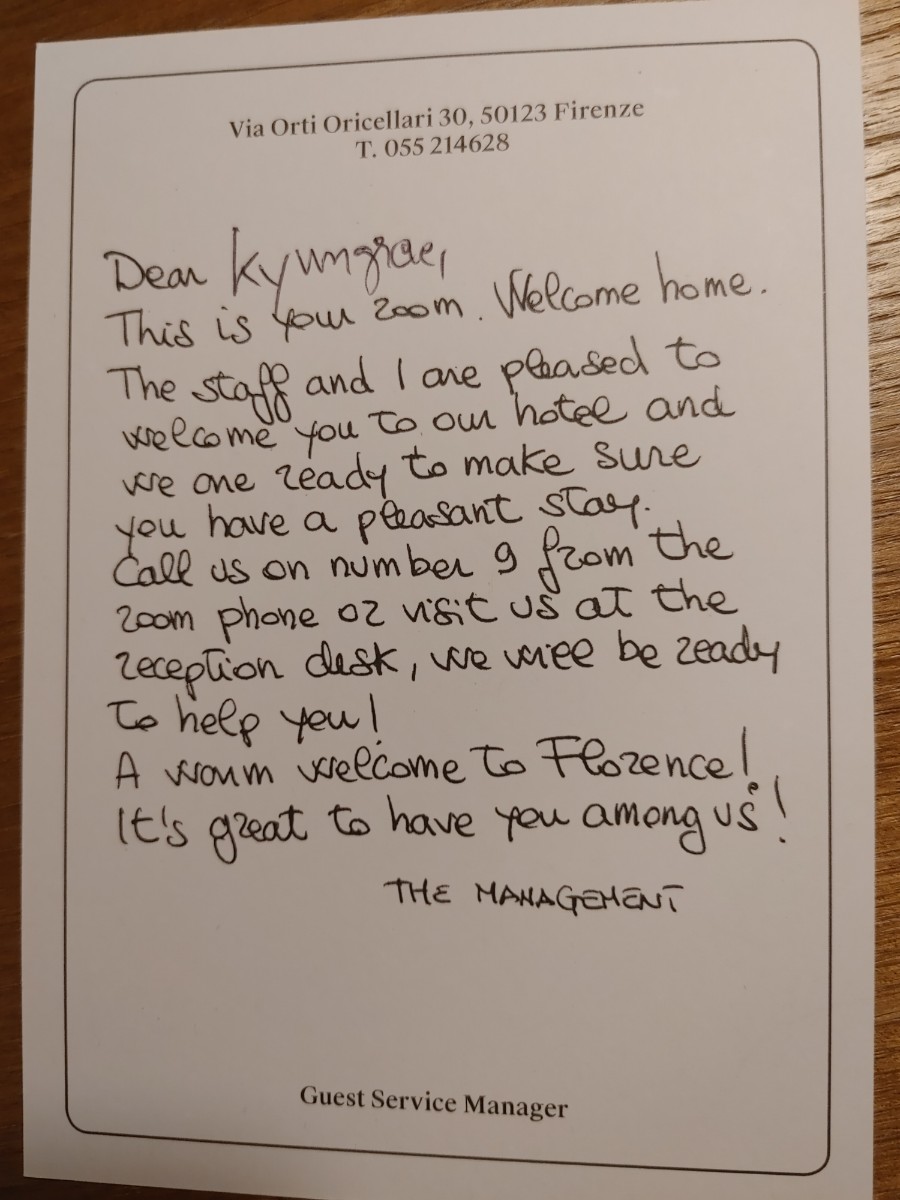 Via Orti Oricellari 30, 50123 Firenze
T. 055 214628
Dear Kyungrae,
This is your room. Welcome home.
The staff and I are pleased to
welcome you to our hotel and
we are ready to make sure
you have a pleasant stay.
Call us on number 9 from the
room phone or visit us at the
reception desk, we will be ready
to help you!
A warm welcome to Florence!
It's great to have you among us!
THE MANAGEMENT
Guest Service Manager